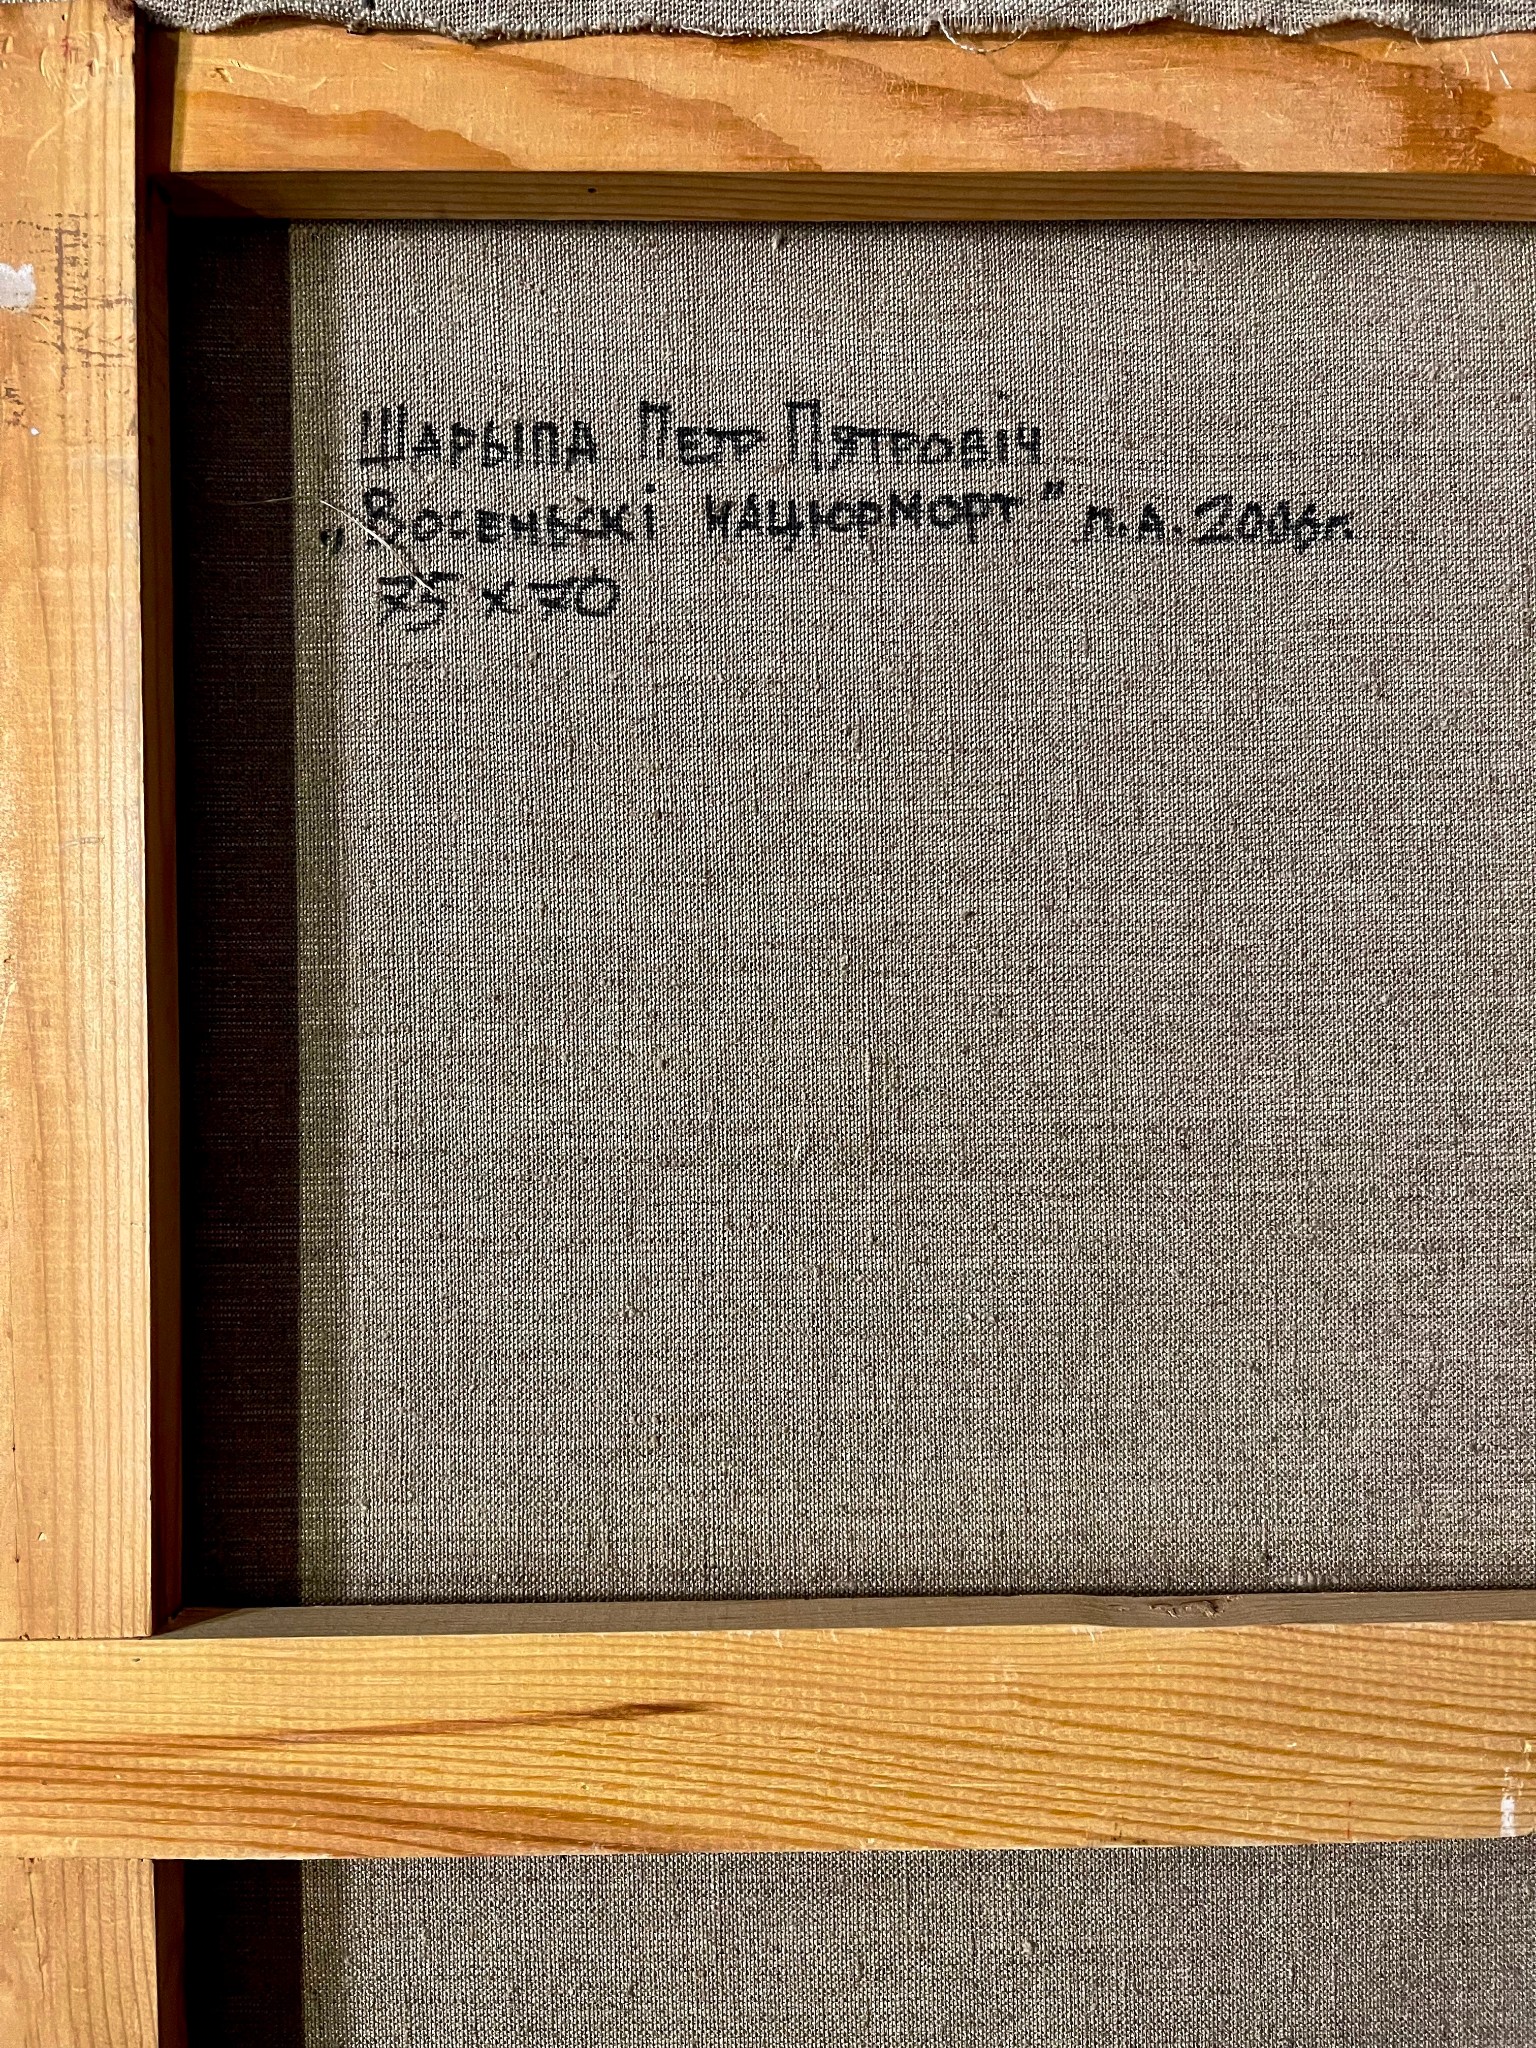 Шарыпа Петр Пятровіч
„Восеньскі нацюрморт" п.а. 2006г.
75 х 70